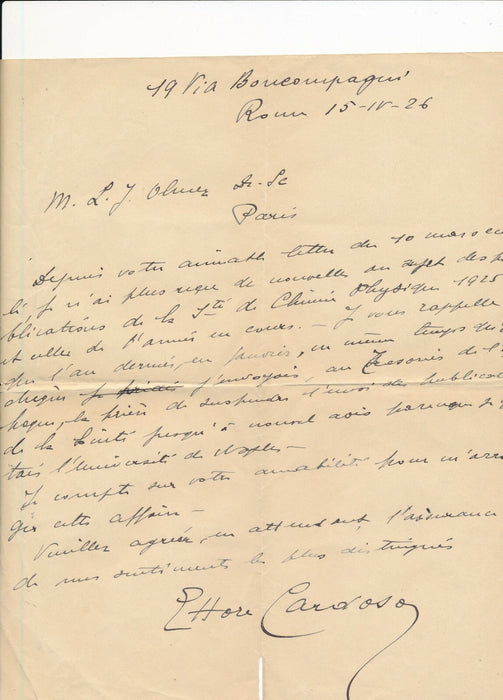 19 Via Boncompagni
Rome 15-IV-26
M. L. J. Olmer Dr-Sc
Paris
Depuis votre aimable lettre du 10 mars
je n'ai plus reçu de nouvelles au sujet des
blications de la Sté de Chimie Physique 1925
et celles de l'année en cours. - Je vous rappelle
que l'an dernier, en janvier, en même temps
j'envoyais, au Tresorier de
la prière de suspendre l'envoi des
de la Sté jusqu'à nouvel avis parceque
tais l'Université de Naples -
Je compte sur votre amabilité pour
ger cette affaire -
Veuillez agréer, en attendant, l'assurance
de mes sentiments les plus distingués
Ettore Cardoso